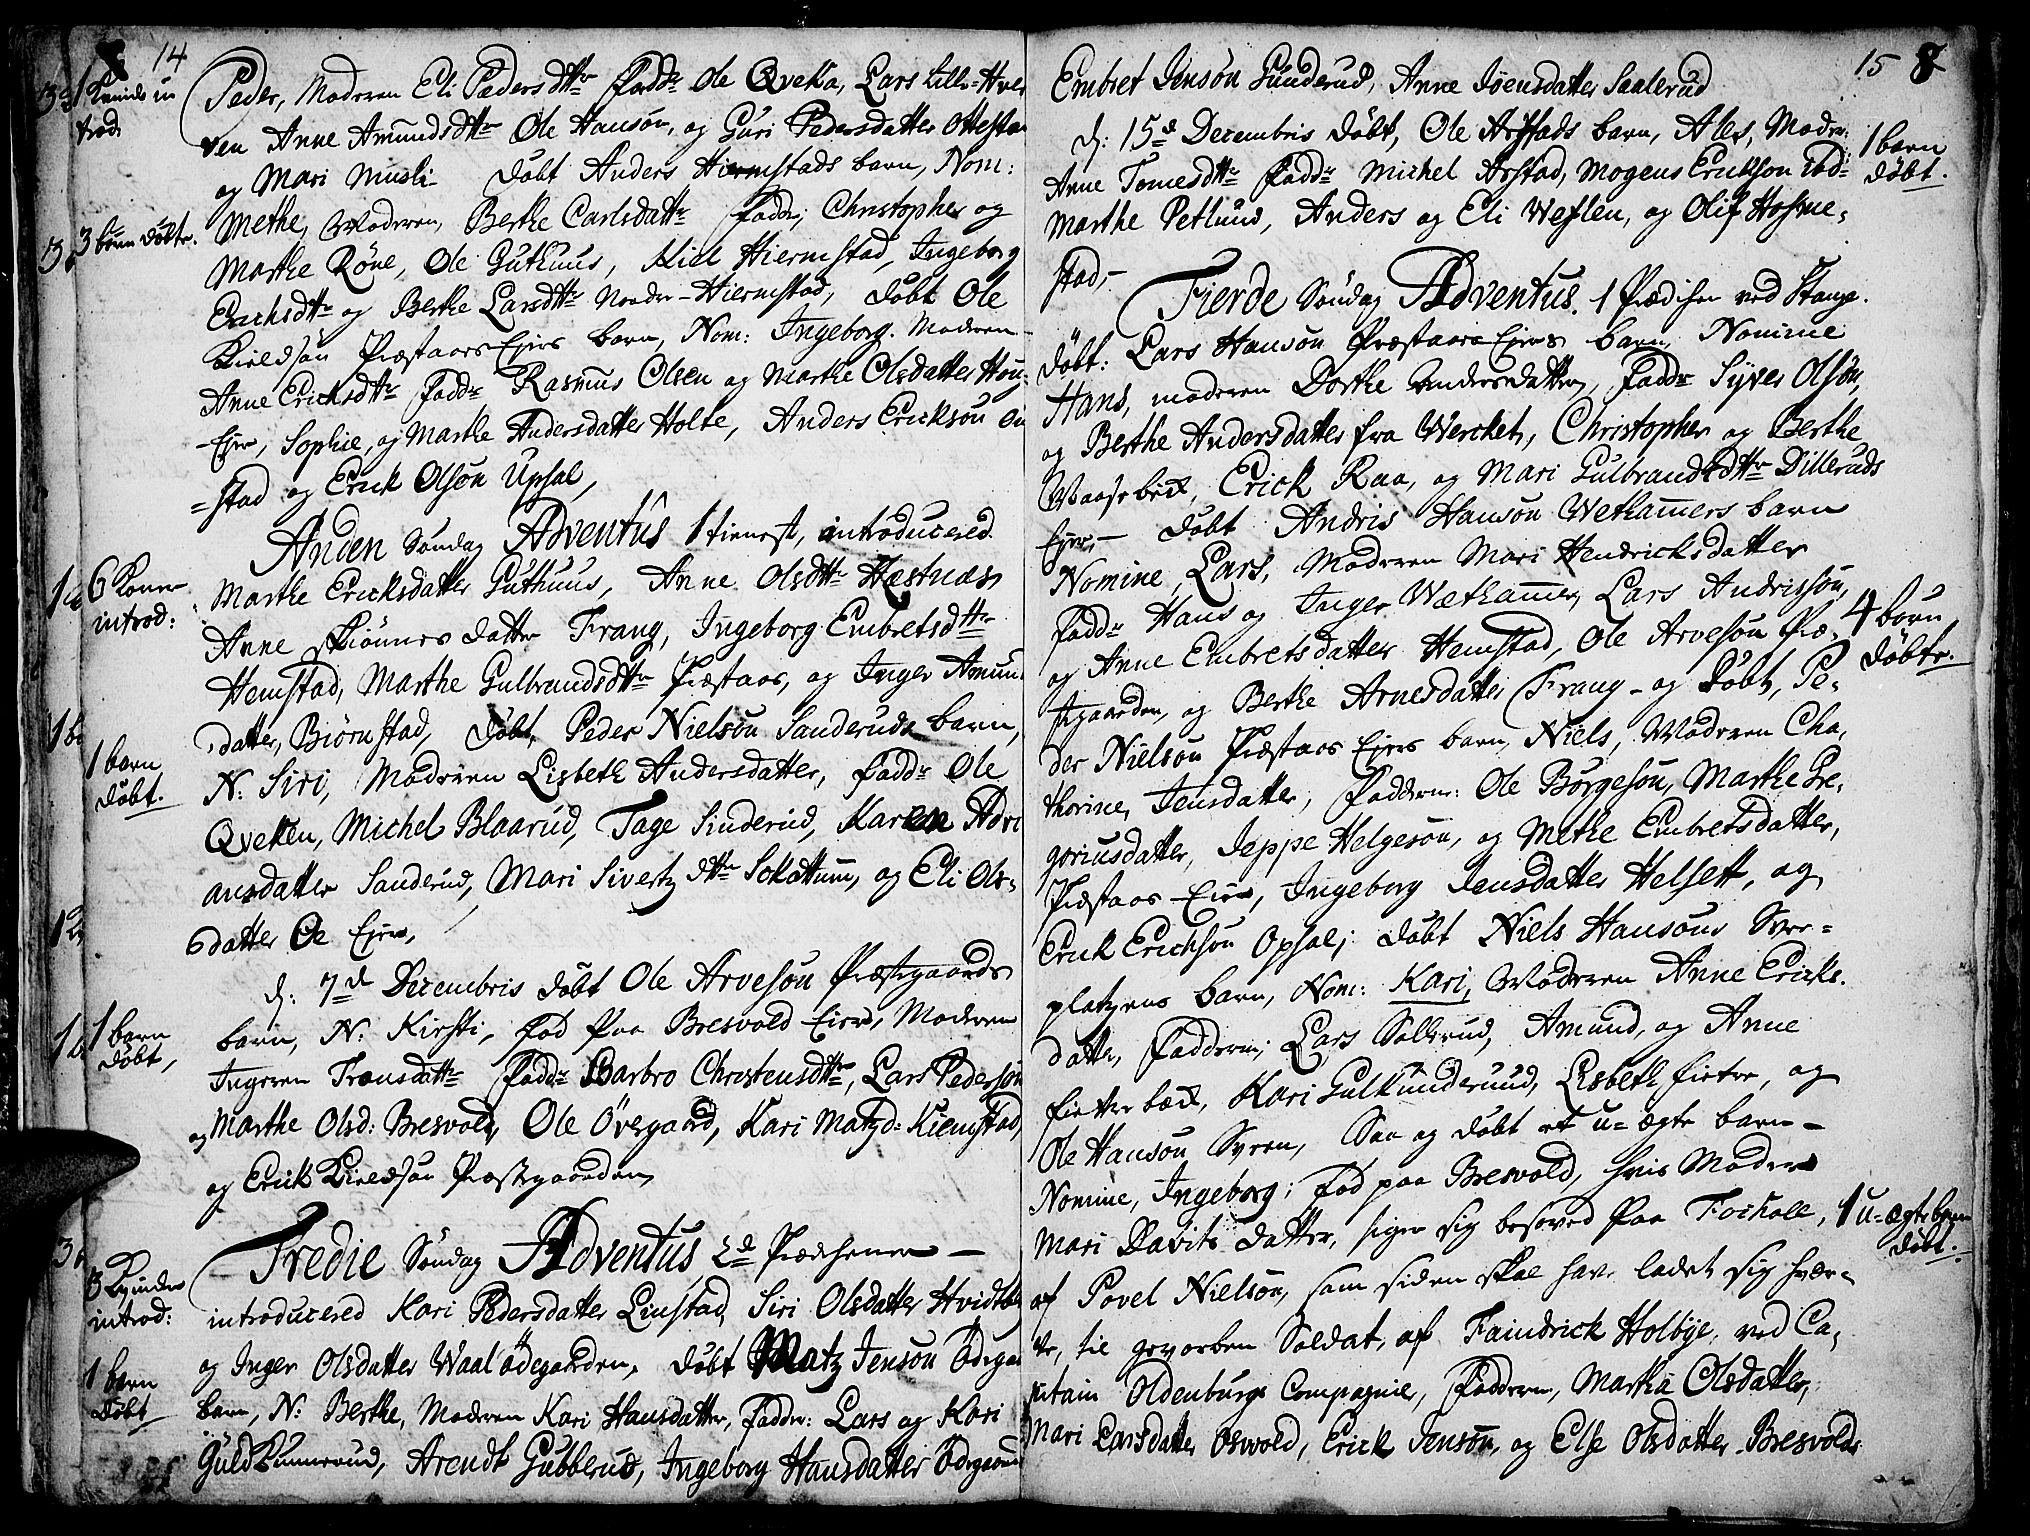 14
Peder, Moderen Eli Pedersdttr Faddr Ole Qveka, Lars Lille-Hver
ven Anne Amundsdttr Ole Hansøn, og Guri Pedersdatter Ottesta
og Mari Musli Døbt Anders Hiermstads barn, Nom:
Methe, Moderen, Berthe Carlsdattr Faddr; Christopher og
Marthe Røne, Ole Guthuus, Kiel Hiermstad, Ingeborg
Erichsdttr og Berthe Larsdttr Nordr-Hiermstad, Døbt Ole
Kieldsøn Præstaars Eiers barn, Nom: Ingeborg. Moderen
Anne Ericksdttr Faddr Rasmus Olsen og Marthe Olsdatter Hou-
Eier, Sophie, og Marthe Andersdatter Holte, Anders Ericksøn
=stad og Erick Olsøn Upsal,
Anden Søndag Adventus 1 tienest, introducered
Marthe Ericksdatter Guthuus, Anne Olsdttr Hæstnæs
Anne datter Frang, Ingeborg Embretsdttr
Hemstad, Marthe Gulbrandsdttr Præstaar, og Inger Amun
datter, Biørnstad, Døbt, Peder Nielsøn Sanderuds barn,
N: Siri, Moderen Lisbeth Andersdatter, Faddr Ole
Qveken, Michel Blaarud, Tage Sinderud, Karen Adri
ansdatter Sanderud, Mari Sivertz dttr Sokattum, og Eli Ols-
datter Oe Eier,
d: 7de Decembris døbt Ole Arvesøn Præstegaards
barn, N: Kirsti, fød paa Bresvold Eier, Moderen
Ingeren Transdattr Faddr Barbro Christensdttr, Lars Pedersøn
og Marthe Olsd: Bresvold, Ole Øvergaard, Kari Matzd: Kiemstad,
og Erick Kieldsøn Præstegaarden,
Tredie Søndag Adventus 2de Prædikener
introducered Kari Pedersdatter Linstad, Siri Olsdatter Hvidt
og Inger Olsdatter Waalødegaarden, Døbt Matz Jensøn Ødegaa
barn, N: Berthe, Moderen Kari Hansdatter, Faddr: Lars og Kari
Guldkunnerud, Arendt Gubberud, Ingeborg Hansdatter Ødegaard
1 Kvinde in
trod:
3 børn døbte.
6 Koner
introd:
1 barn
døbt.
1 barn
døbt,
3 Kvinder
introd:
1 barn
døbt
15 8
Embret Jensøn Gunderud, Anne Joensdatter Saalerud
d: 15de Decembris døbt, Ole Arstads barn, Ales, Modr:
Anne Tomesdttr Faddr Michel Arstad, Mogens Erickson ibd=
Marthe Petlund, Anders og Eli Westlen, og Olif Hosme=
stad,
Fierde Søndag Adventus. 1 Prædiken ved Stange.
døbt: Lars Hansøn Præstaars Eiers barn, Nomine
Hans, moderen Dorthe Andersdatter, Faddr Syver Olsøn,
og Berthe Andersdatter fra Wercket, Christopher og Berthe
Waasebæk, Erick Raa, og Mari Gulbrandsdttr Dilleruds
Eier, Døbt Andris Hansøn Wethamers barn
Nomine, Lars, Moderen Mari Hendricksdatter
Faddr Hans og Inger Wethammer, Lars Andrissøn,
og Anne Embretsdatter Hemstad, Ole Arvesøn Præ-
stgaarden, og Berthe Arnesdatter Frang - og Døbt, Pe=
der Nielsøn Præstaars Eiers barn, Niels, Moderen Cha,
thorine, Jensdatter, Fadderne: Ole Børgesøn, Marthe Gre,
goriusdatter, Jeppe Helgesøn, og Methe Embretsdatter,
Præstaars Eier, Ingeborg Jensdatter Helsett, og
Erick Erichsøn Opsal; døbt Niels Hansøns Svee=
platzens barn, Nom: Kari, Moderen Anne Ericks.
datter, Fadderne; Lars Sollerud, Amund, og Anne
Fietterbæk, Kari Gulkunderuud, Lisbeth Fietre, og
Ole Hansøn Sveen, Saa og døbt et u=ægte barn
Nomine, Ingeborg; fød paa Bresvold, hvis Moder
Mari Davits datter, siger sig besovet paa Fockoll,
af Povel Nielsøn, som siden skal have ladet sig hver-
ve, til gevorben Soldat, af Faindrick Holbye, ved Ca=
pitain Oldenburgs Compagnie, Fadderne, Martha Olsdatter,
Mari Larsdatter Osvold, Erick Jensøn, og Else Olsdatter Bresvolds
1 barn
døbt.
4 børn
døbte.
1 u=ægte barn
døbt.